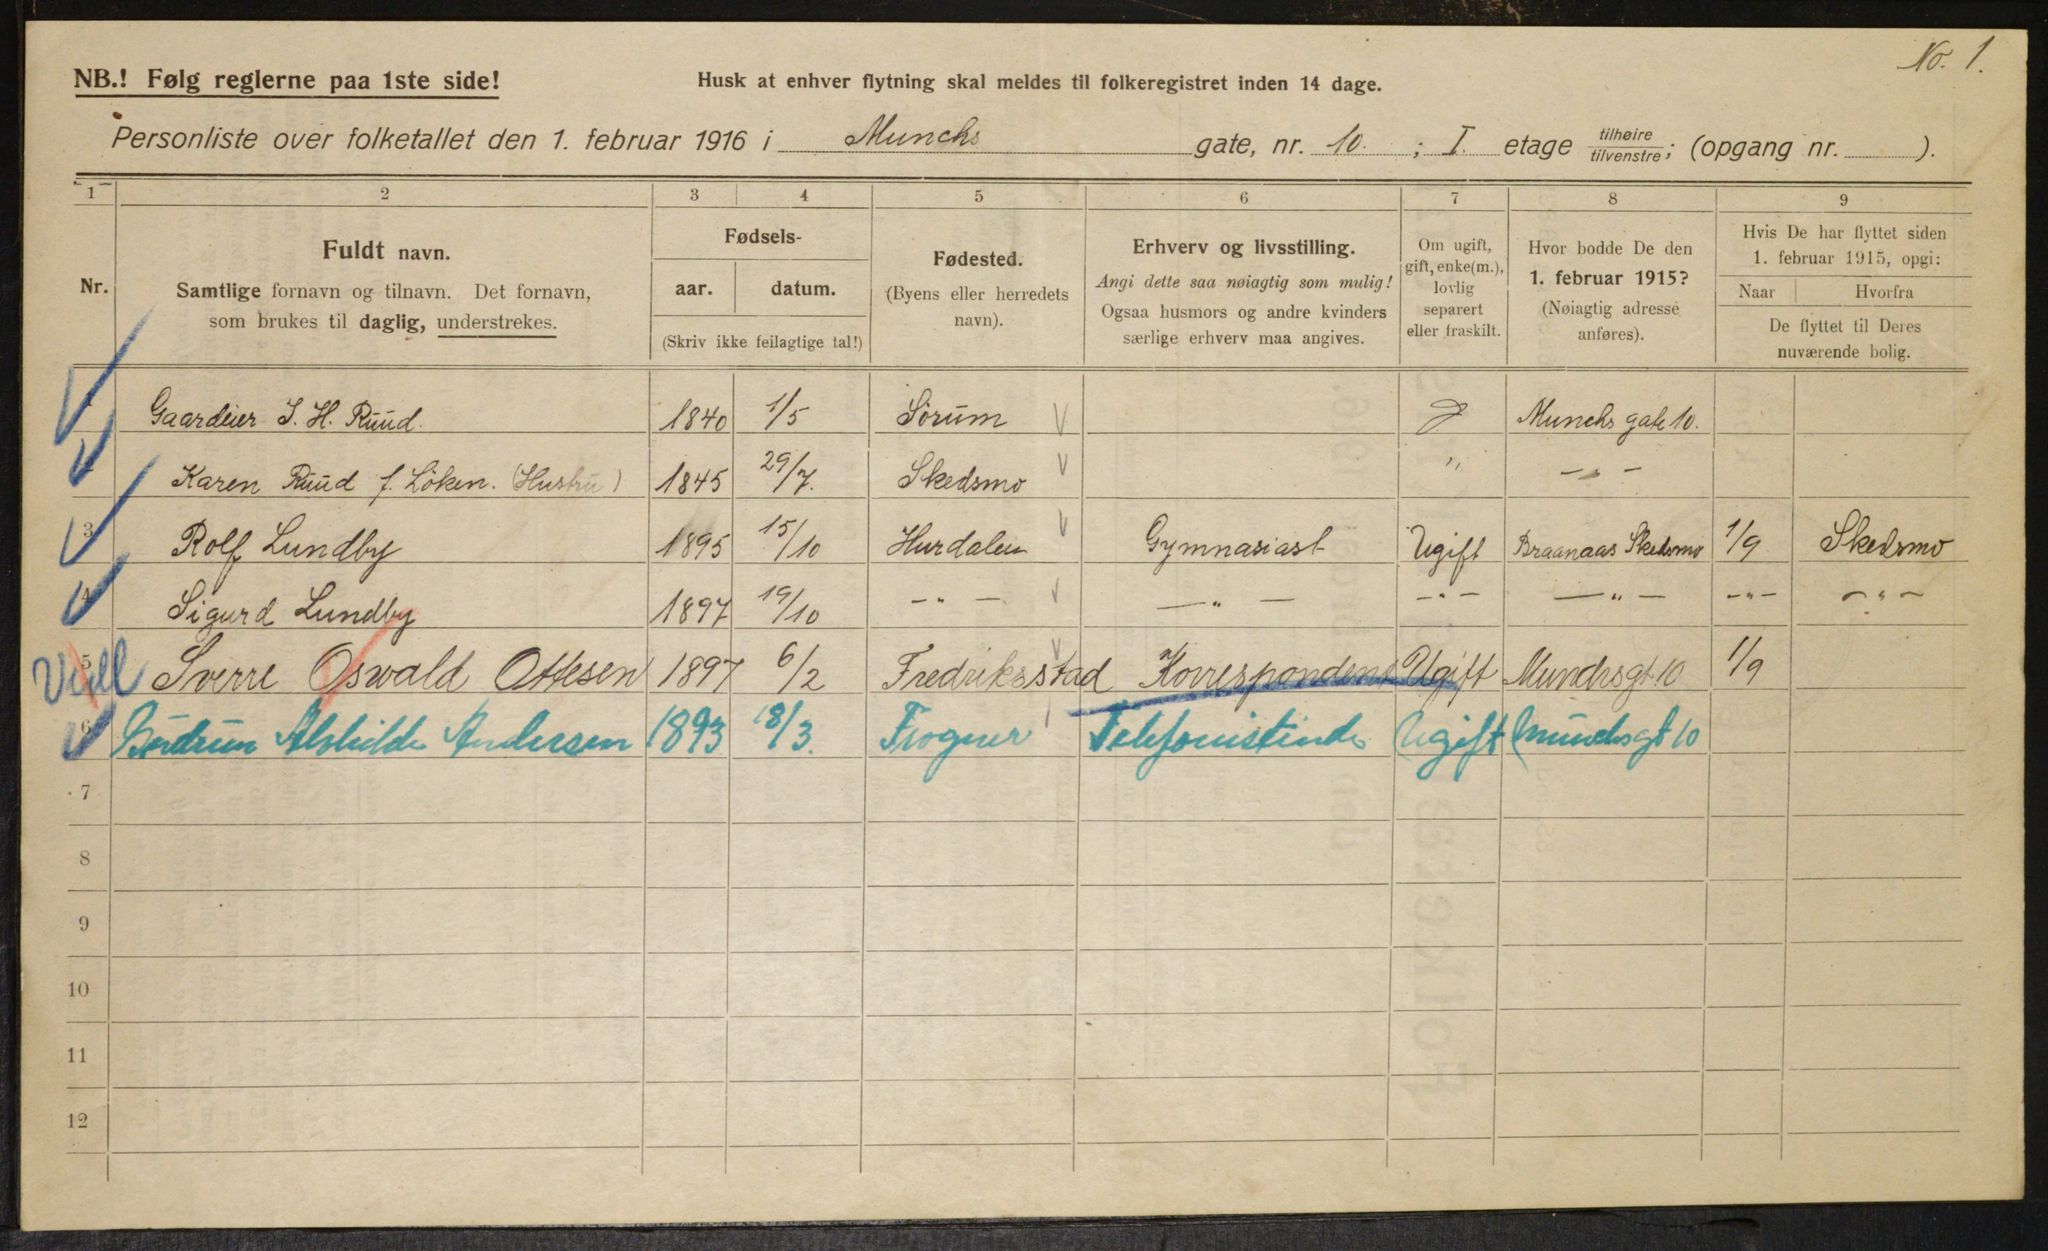 No. 1.
NB.! Følg reglerne paa 1ste side!
Husk at enhver flytning skal meldes til folkeregistret inden 14 dage.
Personliste over folketallet den 1. februar 1916 i Munchs gate, nr. 10. ; I. etage tilhøire tilvenstre; (opgang nr. ).
1 2 3 4 5 6 7 8 9
Nr.
Fuldt navn.
Samtlige fornavn og tilnavn. Det fornavn,
som brukes til daglig, understrekes.
Fødsels-
aar. datum.
(Skriv ikke feilagtige tal!)
Fødested.
(Byens eller herredets
navn).
Erhverv og livsstilling.
Angi dette saa nøiagtig som mulig!
Ogsaa husmors og andre kvinders
særlige erhverv maa angives.
Om ugift,
gift, enke(m.),
lovlig
separert
eller fraskilt.
Hvor bodde De den
1. februar 1915?
(Nøiagtig adresse
anføres).
Hvis De har flyttet siden
1. februar 1915, opgi:
Naar Hvorfra
De flyttet til Deres
nuværende bolig.
Gaardeier J. H. Ruud. 1840 1/5 Sörum Munchs gate 10.
Karen Ruud f. Löken. (Hustru) 1845 29/7. Skedsmo " — " —
3 Rolf Lundby 1895 15/10 Hurdalen Gymnasiast Ugift Braanaas Skedsmo 1/9 Skedsmo
4 Sigurd Lundby 1897 19/10 — " — — " — — " — — " — — " — — " —
5 Sverre Oswald Ottesen 1897 6/2 Fredriksstad Korrespondent Ugift Munchsgt. 10 1/9
6 Andersen 1893 18/3. Frogner Telefonistinde Ugift Munchsgt 10
7
8
9
10
11
12